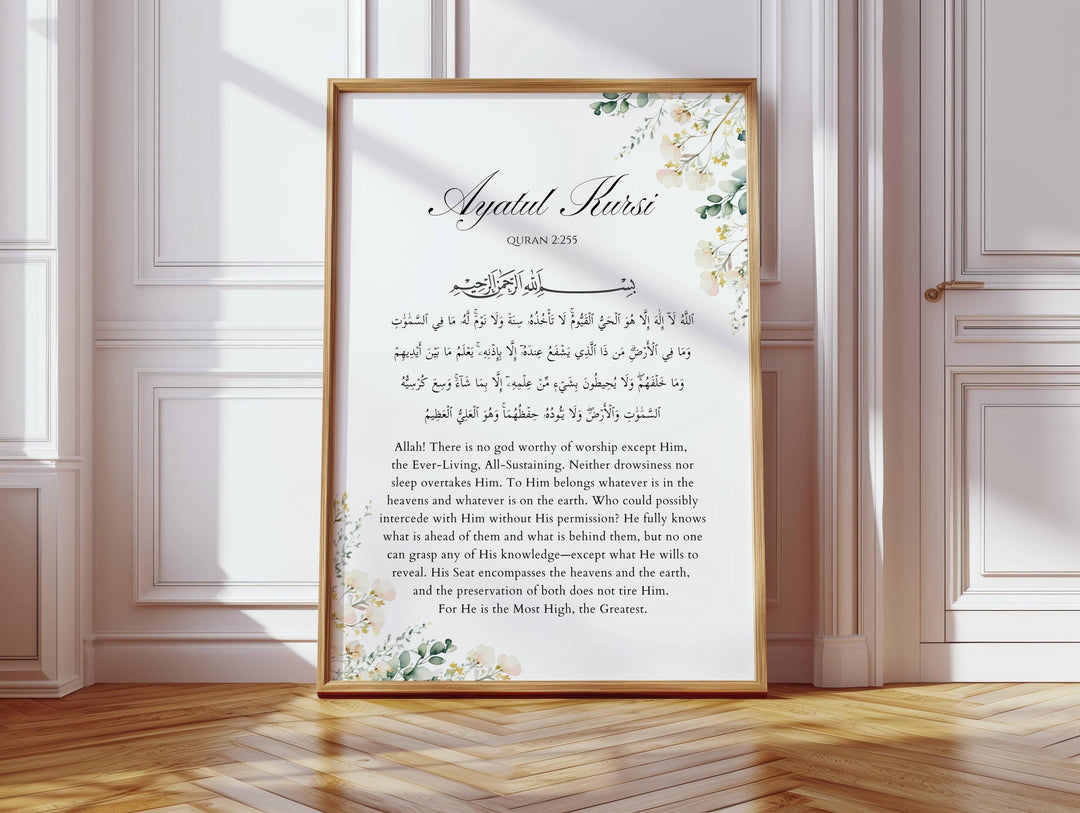 Ayatul Kursi
QURAN 2:255
بِسْمِ ٱللَّهِ ٱلرَّحْمَٰنِ ٱلرَّحِيمِ
ٱللَّهُ لَآ إِلَٰهَ إِلَّا هُوَ ٱلْحَىُّ ٱلْقَيُّومُ ۚ لَا تَأْخُذُهُۥ سِنَةٌ وَلَا نَوْمٌ ۚ لَّهُۥ مَا فِي ٱلسَّمَٰوَٰتِ
وَمَا فِي ٱلْأَرْضِ ۗ مَن ذَا ٱلَّذِي يَشْفَعُ عِندَهُۥٓ إِلَّا بِإِذْنِهِۦ ۚ يَعْلَمُ مَا بَيْنَ أَيْدِيهِمْ
وَمَا خَلْفَهُمْ ۖ وَلَا يُحِيطُونَ بِشَيْءٍ مِّنْ عِلْمِهِۦٓ إِلَّا بِمَا شَآءَ ۚ وَسِعَ كُرْسِيُّهُ
ٱلسَّمَٰوَٰتِ وَٱلْأَرْضَ ۖ وَلَا يَـُٔودُهُۥ حِفْظُهُمَا ۚ وَهُوَ ٱلْعَلِيُّ ٱلْعَظِيمُ
Allah! There is no god worthy of worship except Him,
the Ever-Living, All-Sustaining. Neither drowsiness nor
sleep overtakes Him. To Him belongs whatever is in the
heavens and whatever is on the earth. Who could possibly
intercede with Him without His permission? He fully knows
what is ahead of them and what is behind them, but no one
can grasp any of His knowledge—except what He wills to
reveal. His Seat encompasses the heavens and the earth,
and the preservation of both does not tire Him.
For He is the Most High, the Greatest.